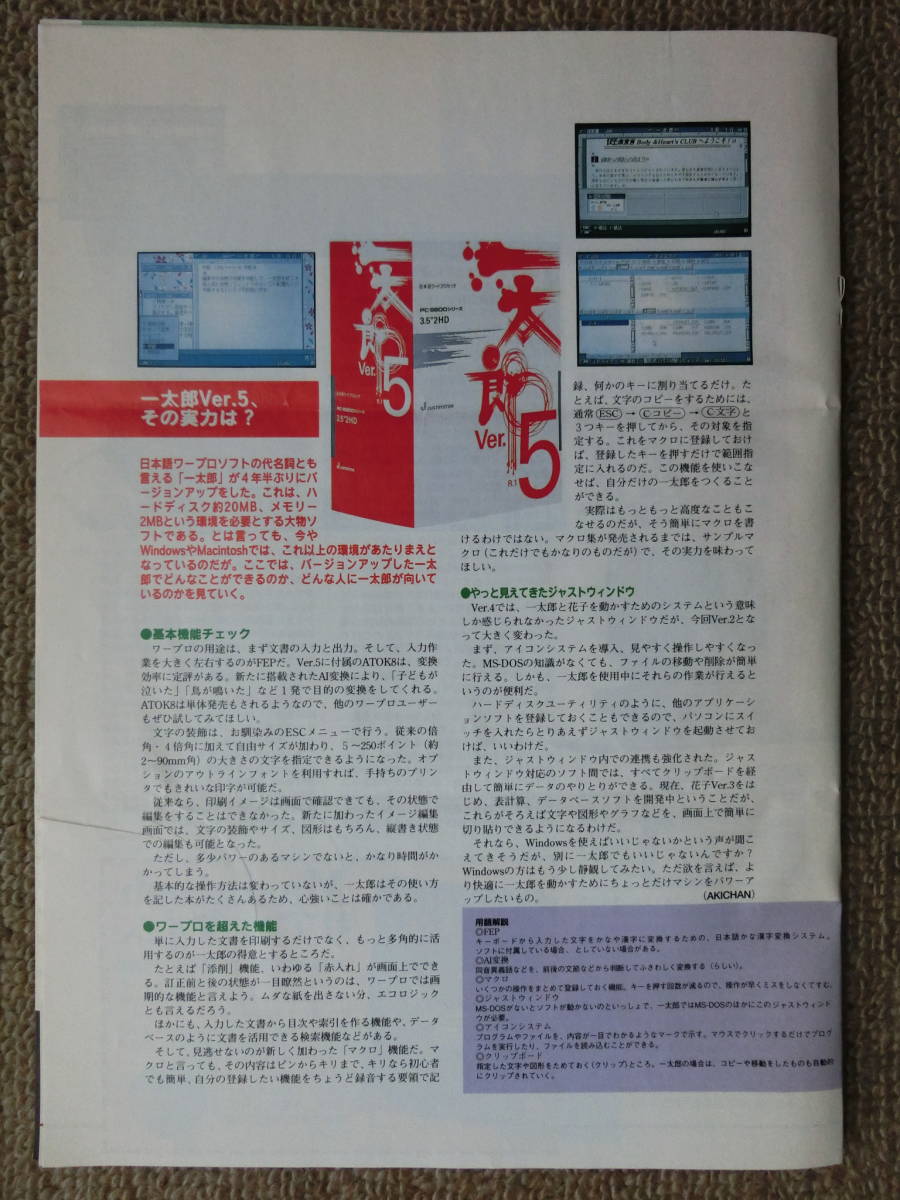 一太郎Ver.5、
その実力は？
日本語ワープロソフトの代名詞とも
言える「一太郎」が４年半ぶりにバ
ージョンアップをした。これは、ハ
ードディスク約20MB、メモリー
2MBという環境を必要とする大物ソ
フトである。とは言っても、今や
WindowsやMacintoshでは、これ以上の環境があたりまえと
なっているのだが。ここでは、バージョンアップした一太
郎でどんなことができるのか、どんな人に一太郎が向いて
いるのかを見ていく。
●基本機能チェック
ワープロの用途は、まず文書の入力と出力。そして、入力作
業を大きく左右するのがFEPだ。Ver.5に付属のATOK8は、変換
効率に定評がある。新たに搭載されたAI変換により、「子どもが
泣いた」「鳥が鳴いた」など１発で目的の変換をしてくれる。
ATOK8は単体発売もされるようなので、他のワープロユーザー
もぜひ試してみてほしい。
文字の装飾は、お馴染みのESCメニューで行う。従来の倍
角・４倍角に加えて自由サイズが加わり、５〜250ポイント（約
2〜90mm角）の大きさの文字を指定できるようになった。オプ
ションのアウトラインフォントを利用すれば、手持ちのプリン
タでもきれいな印字が可能だ。
従来なら、印刷イメージは画面で確認できても、その状態で
編集をすることはできなかった。新たに加わったイメージ編集
画面では、文字の装飾やサイズ、図形はもちろん、縦書き状態
での編集も可能となった。
ただし、多少パワーのあるマシンでないと、かなり時間がか
かってしまう。
基本的な操作方法は変わっていないが、一太郎はその使い方
を記した本がたくさんあるため、心強いことは確かである。
●ワープロを超えた機能
単に入力した文書を印刷するだけでなく、もっと多角的に活
用するのが一太郎の得意とするところだ。
たとえば「添削」機能、いわゆる「赤入れ」が画面上ででき
る。訂正前と後の状態が一目瞭然というのは、ワープロでは画
期的な機能と言えよう。ムダな紙を出さない分、エコロジック
とも言えるだろう。
ほかにも、入力した文書から目次や索引を作る機能や、データ
ベースのように文書を活用できる検索機能などがある。
そして、見逃せないのが新しく加わった「マクロ」機能だ。マ
クロと言っても、その内容はピンからキリまで、キリなら初心者
でも簡単、自分の登録したい機能をちょうど録音する要領で記
一太郎
Ver.
5
日本語ワードプロセッサ
PC-9800シリーズ
3.5"2HD
Justsystem
一太郎
日本語ワードプロセッサ
PC-9800シリーズ
3.5"2HD
Justsystem
Ver.5
8.1
Body &Heart's CLUB へようこそ！
録、何かのキーに割り当てるだけ。た
とえば、文字のコピーをするためには、
通常(ESC)→(Cコピー)→(C文字)と
３つキーを押してから、その対象を指
定する。これをマクロに登録しておけ
ば、登録したキーを押すだけで範囲指
定に入れるのだ。この機能を使いこな
せば、自分だけの一太郎をつくること
ができる。
実際はもっともっと高度なこともこ
なせるのだが、そう簡単にマクロを書
けるわけではない。マクロ集が発売されるまでは、サンプルマ
クロ（これだけでもかなりのものだが）で、その実力を味わって
ほしい。
●やっと見えてきたジャストウィンドウ
Ver.4では、一太郎と花子を動かすためのシステムという意味
しか感じられなかったジャストウィンドウだが、今回Ver.2とな
って大きく変わった。
まず、アイコンシステムを導入、見やすく操作しやすくなっ
た。MS-DOSの知識がなくても、ファイルの移動や削除が簡単
に行える。しかも、一太郎を使用中にそれらの作業が行えると
いうのが便利だ。
ハードディスクユーティリティのように、他のアプリケーシ
ョンソフトを登録しておくこともできるので、パソコンにスイ
ッチを入れたらとりあえずジャストウィンドウを起動させてお
けば、いいわけだ。
また、ジャストウィンドウ内での連携も強化された。ジャス
トウィンドウ対応のソフト間では、すべてクリップボードを経
由して簡単にデータのやりとりができる。現在、花子Ver.3をは
じめ、表計算、データベースソフトを開発中ということだが、
これらがそろえば文字や図形やグラフなどを、画面上で簡単に
切り貼りできるようになるわけだ。
それなら、Windowsを使えばいいじゃないかという声が聞こ
えてきそうだが、別に一太郎でもいいじゃないんですか？
Windowsの方はもう少し静観してみたい。ただ欲を言えば、よ
り快適に一太郎を動かすためにちょっとだけマシンをパワーア
ップしたいもの。　（AKICHAN）
用語解説
◎FEP
キーボードから入力した文字をかなや漢字に変換するための、日本語かな漢字変換システム。
ソフトに付属している場合、としていない場合がある。
◎AI変換
同音異義語などを、前後の文節などから判断してふさわしく変換する（らしい）。
◎マクロ
いくつかの操作をまとめて登録しておく機能。キーを押す回数が減るので、操作が早くミスをしなくてすむ。
◎ジャストウィンドウ
MS-DOSがないとソフトが動かないのといっしょで、一太郎ではMS-DOSのほかにこのジャストウィンド
ウが必要。
◎アイコンシステム
プログラムやファイルを、内容が一目でわかるようなマークで示す。マウスでクリックするだけでプログ
ラムを実行したり、ファイルを読み込むことができる。
◎クリップボード
指定した文字や図形をためておく（クリップ）ところ。一太郎の場合は、コピーや移動をしたものも自動的
にクリップされていく。